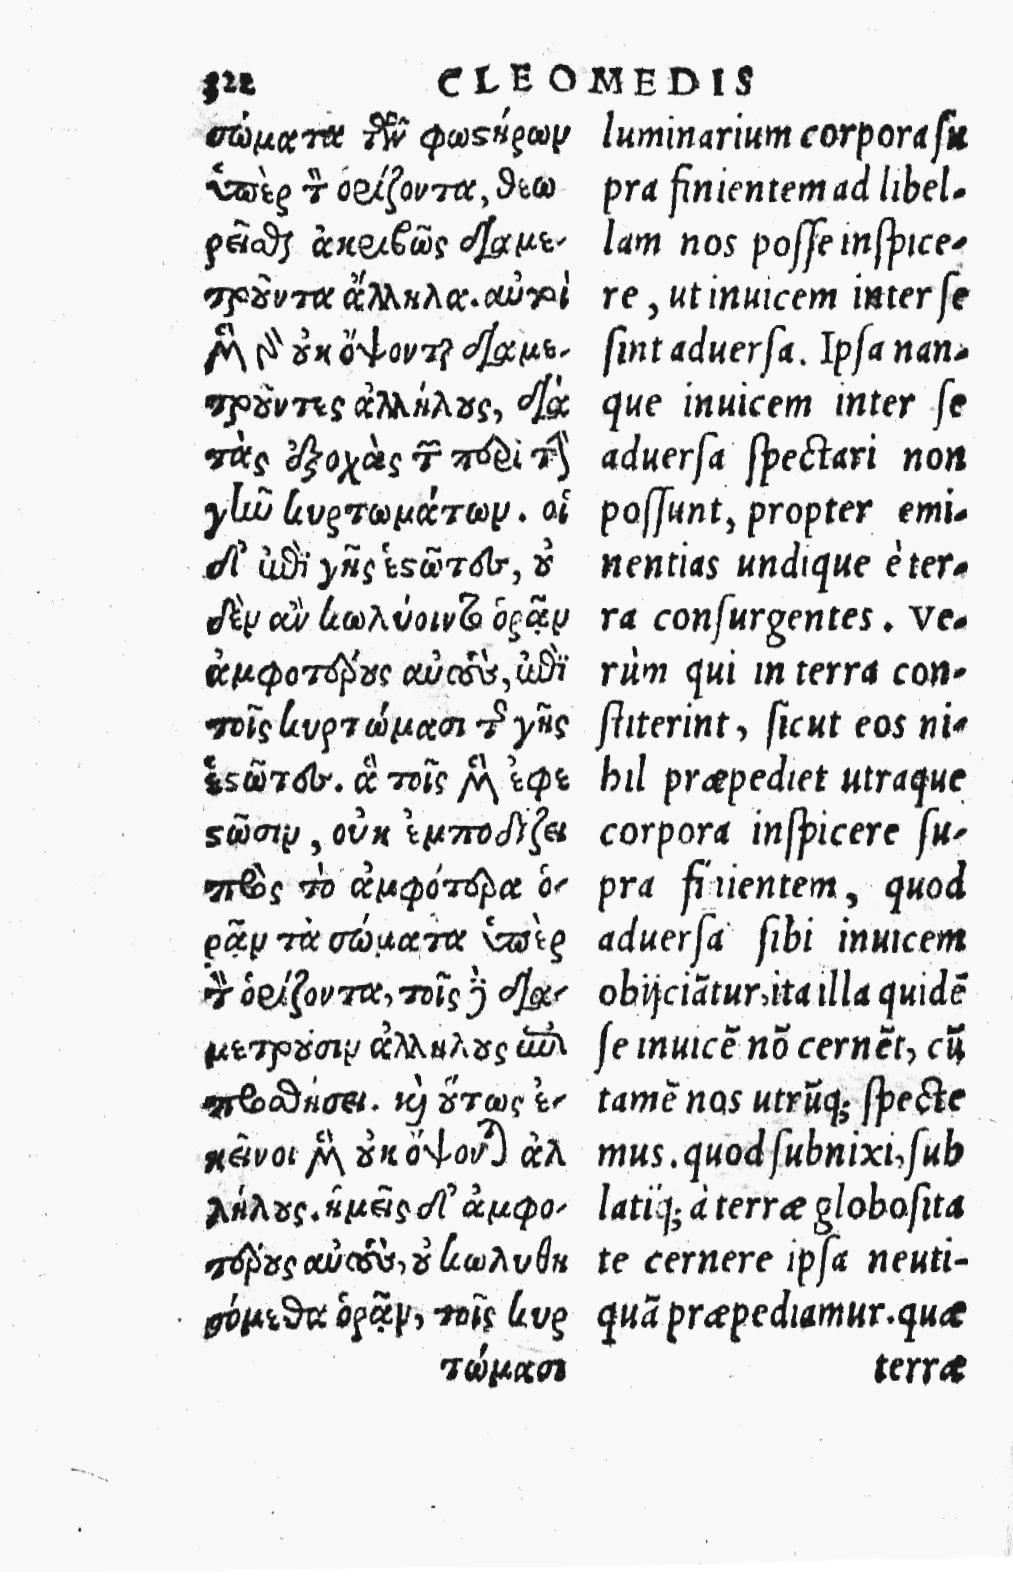 322 CLEOMEDIS
σώματα τῶν φωστήρων
ὑπὲρ τὸν ὁρίζοντα, θεω
ρεῖσθαι ἀκριβῶς διαμε-
τροῦντα ἄλληλα. αὐτοὶ
μὲν γὰρ οὐκ ὄψονται διαμε-
τροῦντες ἀλλήλους, διὰ
τὰς ἐξοχὰς τῶν περὶ τὴν
γῆν κυρτωμάτων. οἱ
δ' ἐπὶ γῆς ἑστῶτες, οὐ
δὲν ἂν κωλύοιντο ὁρᾷν
ἀμφοτέρους αὐτοὺς, ἐπὶ
τοῖς κυρτώμασι τῆς γῆς
ἑστῶτες. ἃ τοῖς μὲν ἐφε
στῶσιν, οὐκ ἐμποδίζει
πρὸς τὸ ἀμφότερα ὁ-
ρᾷν τὰ σώματα ὑπὲρ
τὸν ὁρίζοντα, τοῖς δὲ δια-
μετροῦσιν ἀλλήλους ἐπι
προσθήσει. καὶ οὕτως ἐ-
κεῖνοι μὲν οὐκ ὄψονται ἀλ
λήλους. ἡμεῖς δ' ἀμφο-
τέρους αὐτοὺς, οὐ κωλυθη
σόμεθα ὁρᾷν, τοῖς κυρ
τώμασι
luminarium corpora su
pra finientem ad libel-
lam nos posse inspice-
re, ut inuicem inter se
sint aduersa. Ipsa nan-
que inuicem inter se
aduersa spectari non
possunt, propter emi-
nentias undique è ter-
ra consurgentes. Ve-
rùm qui in terra con-
stiterint, sicut eos ni-
hil præpediet utraque
corpora inspicere su-
pra finientem, quod
aduersa sibi inuicem
obijciãtur, ita illa quidẽ
se inuicẽ nõ cernẽt, cũ
tamẽ nos utrũq; specte
mus. quod subnixi, sub
latiq́; à terræ globosita
te cernere ipsa neuti-
quã præpediamur. quæ
terræ